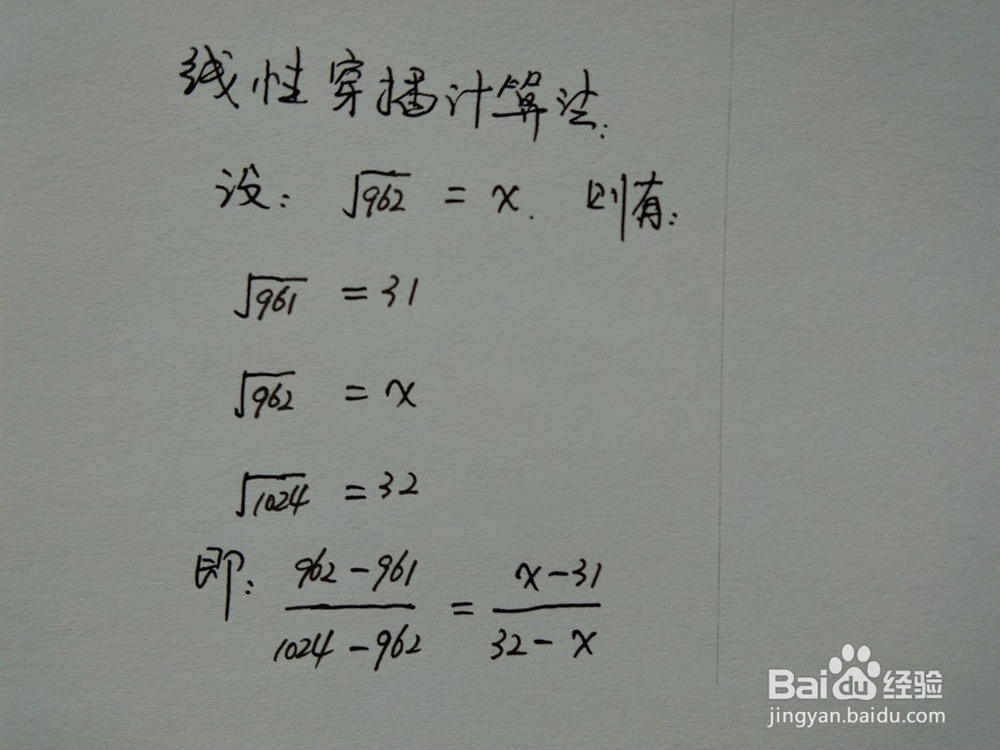 线性穿插计算法:
设: √962 = x. 则有:
√961 = 31
√962 = x
√1024 = 32
即: (962-961)/(1024-962) = (x-31)/(32-x)
Baidu 经验
jingyan.baidu.com